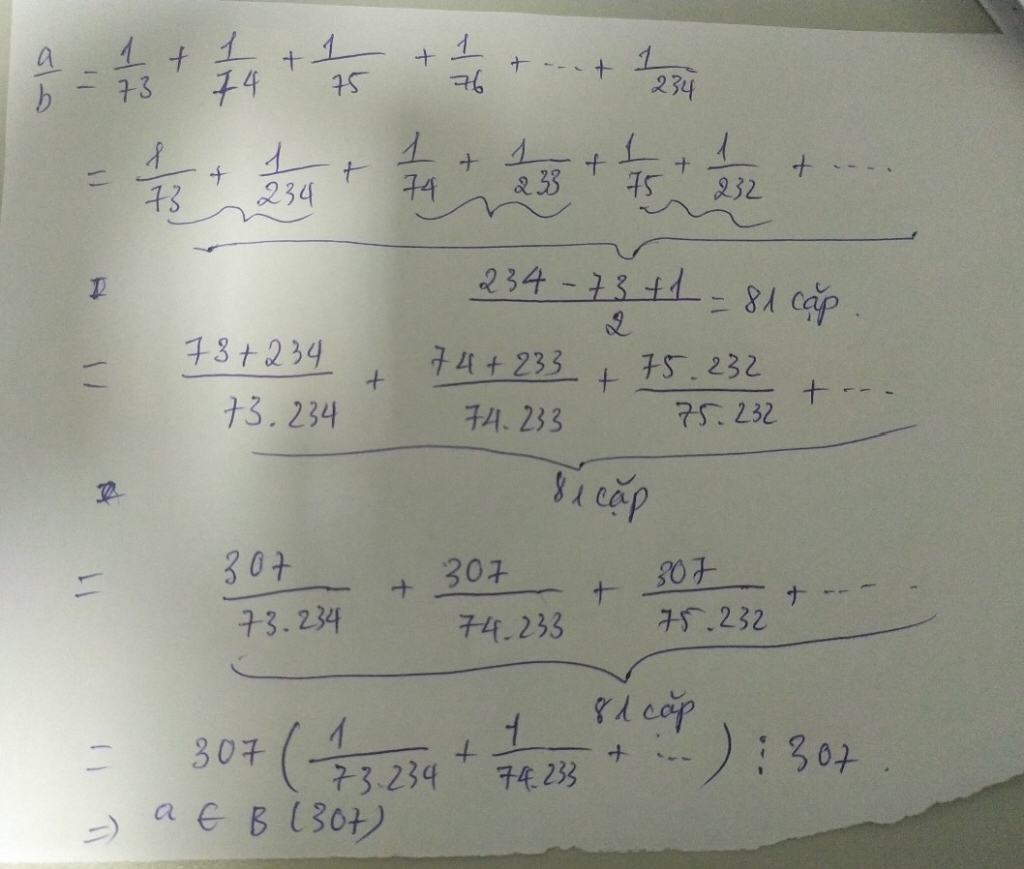 a/b = 1/73 + 1/74 + 1/75 + 1/76 + ... + 1/234
= 1/73 + 1/234 + 1/74 + 1/233 + 1/75 + 1/232 + ....
(234 - 73 + 1)/2 = 81 cặp.
= (73+234)/(73.234) + (74+233)/(74.233) + (75.232)/(75.232) + ....
81 cặp
= 307/(73.234) + 307/(74.233) + 307/(75.232) + ....
81 cặp
= 307 (1/(73.234) + 1/(74.233) + ...) ⋮ 307.
=) a ∈ B (307)